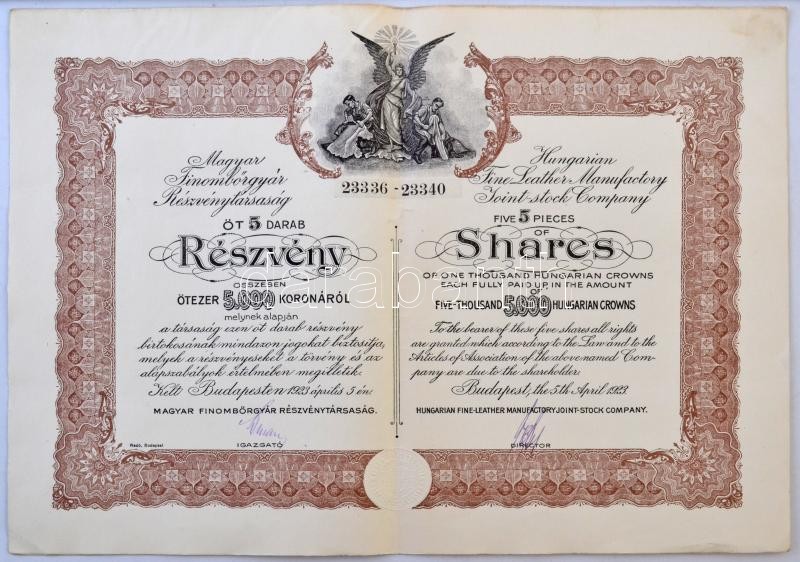 23336 - 23340
Magyar
Finombőrgyár
Részvénytársaság
ÖT 5 DARAB
Részvény
ÖSSZESEN
ÖTEZER 5,000 KORONÁRÓL
melynek alapján
a társaság ezen öt darab részvény
birtokosának mindazon jogokat biztosítja,
melyek a részvényeseket a törvény és az
alapszabályok értelmében megilletik.
Kelt Budapesten 1923 április 5 én.
MAGYAR FINOMBŐRGYÁR RÉSZVÉNYTÁRSASÁG.
IGAZGATÓ
Radó, Budapest
Hungarian
Fine Leather Manufactory
Joint-stock Company
FIVE 5 PIECES
OF
Shares
OF ONE THOUSAND HUNGARIAN CROWNS
EACH FULLY PAID UP, IN THE AMOUNT
OF
FIVE-THOUSAND 5,000 HUNGARIAN CROWNS
To the bearer of these five shares all rights
are granted which according to the Law and to the
Articles of Association of the above named Com-
pany are due to the shareholder.
Budapest, the 5.th April 1923.
HUNGARIAN FINE-LEATHER MANUFACTORY JOINT-STOCK COMPANY.
DIRECTOR
darabanth